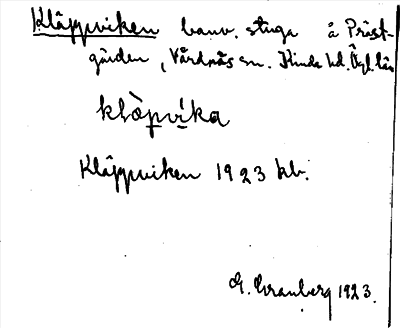 Kläppviken banv. stuga å Präst-
gården, Vårdnäs sn. Kinda hd. Ögl. län
klæ̀pvíka
Kläppviken 1923 kb.
G. Granberg 1923.